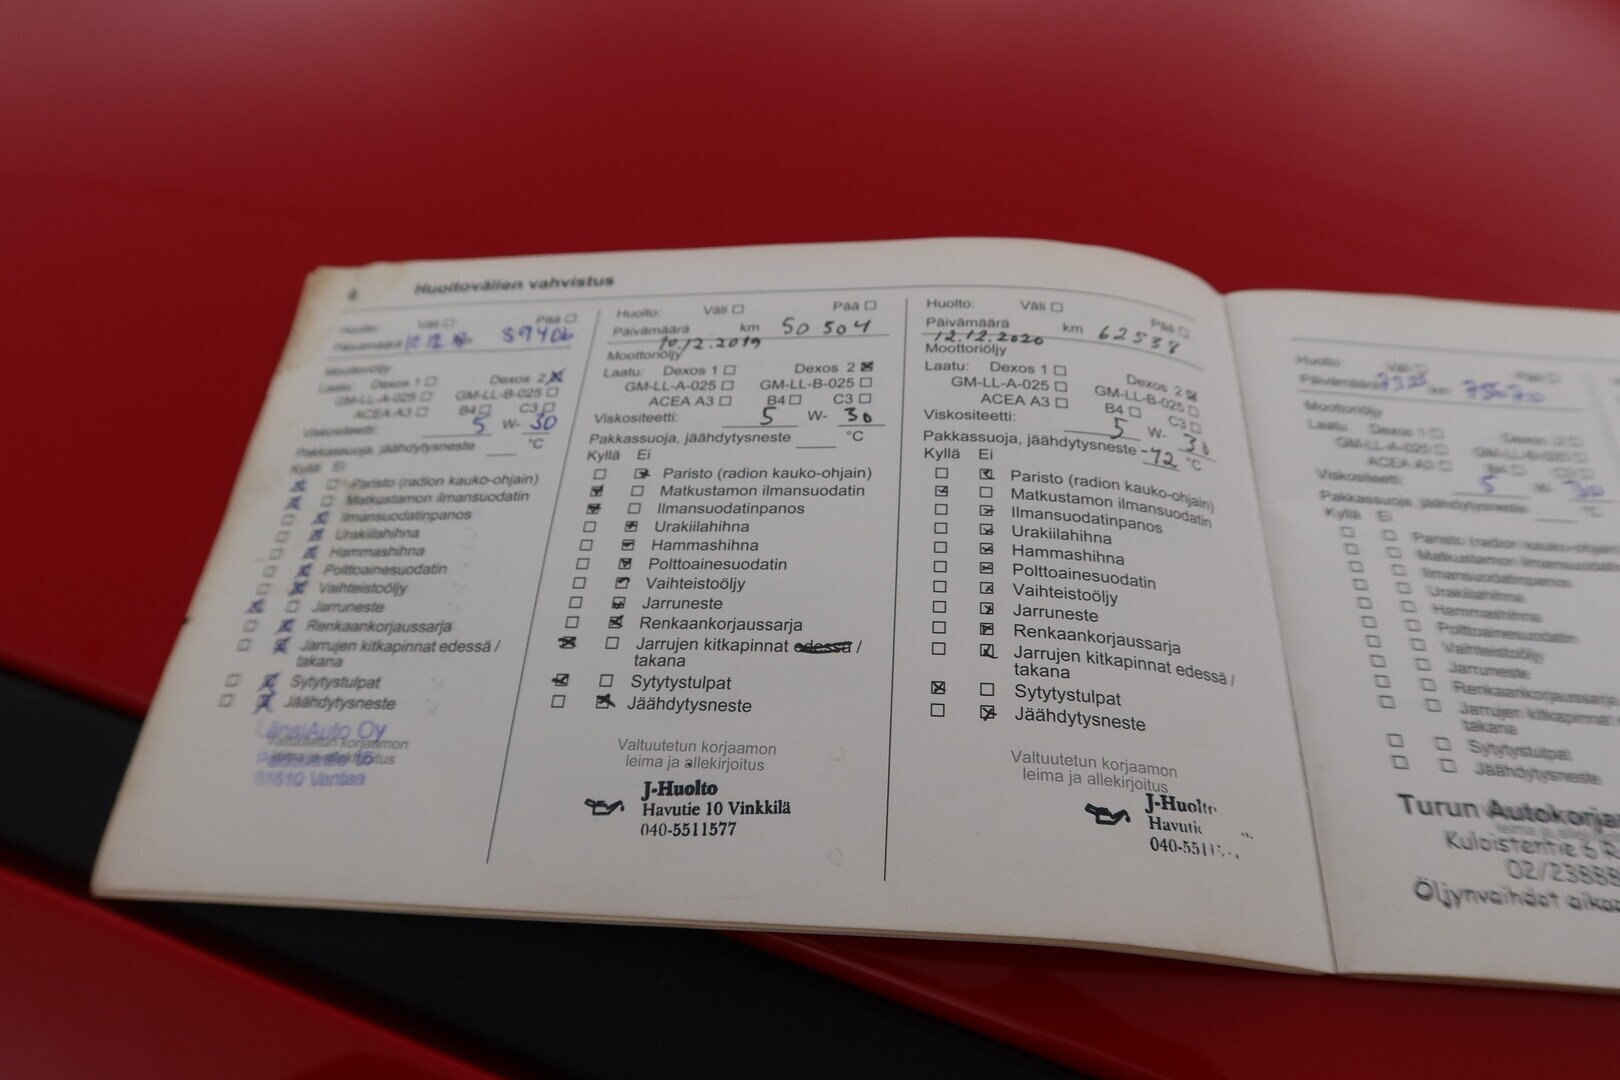 Huoltovälien vahvistus
Huolto: Väli Pää
Päivämäärä 10.12 km 39406
Moottoriöljy
Laatu: Dexos 1 Dexos 2
GM-LL-A-025 GM-LL-B-025
ACEA A3 B4 C3
Viskositeetti: 5 W- 30
Pakkassuoja, jäähdytysneste °C
Kyllä Ei
Paristo (radion kauko-ohjain)
Matkustamon ilmansuodatin
Ilmansuodatinpanos
Urakiilahihna
Hammashihna
Polttoainesuodatin
Vaihteistoöljy
Jarruneste
Renkaankorjaussarja
Jarrujen kitkapinnat edessä /
takana
Sytytystulpat
Jäähdytysneste
LänsiAuto Oy
Valtuutetun korjaamon
leima ja allekirjoitus
01510 Vantaa
Huolto: Väli Pää
Päivämäärä km 50 504
10.12.2019
Moottoriöljy
Laatu: Dexos 1 Dexos 2
GM-LL-A-025 GM-LL-B-025
ACEA A3 B4 C3
Viskositeetti: 5 W- 30
Pakkassuoja, jäähdytysneste °C
Kyllä Ei
Paristo (radion kauko-ohjain)
Matkustamon ilmansuodatin
Ilmansuodatinpanos
Urakiilahihna
Hammashihna
Polttoainesuodatin
Vaihteistoöljy
Jarruneste
Renkaankorjaussarja
Jarrujen kitkapinnat edessä /
takana
Sytytystulpat
Jäähdytysneste
Valtuutetun korjaamon
leima ja allekirjoitus
J-Huolto
Havutie 10 Vinkkilä
040-5511577
Huolto: Väli Pää
Päivämäärä km 62538
12.12.2020
Moottoriöljy
Laatu: Dexos 1 Dexos 2
GM-LL-A-025 GM-LL-B-025
ACEA A3 B4 C3
Viskositeetti: 5 W- 30
Pakkassuoja, jäähdytysneste -42 °C
Kyllä Ei
Paristo (radion kauko-ohjain)
Matkustamon ilmansuodatin
Ilmansuodatinpanos
Urakiilahihna
Hammashihna
Polttoainesuodatin
Vaihteistoöljy
Jarruneste
Renkaankorjaussarja
Jarrujen kitkapinnat edessä /
takana
Sytytystulpat
Jäähdytysneste
Valtuutetun korjaamon
leima ja allekirjoitus
J-Huolto
Havutie
040-551
Huolto Väli Pää
Päivämäärä km
Moottoriöljy
Laatu: Dexos 1 Dexos 2
GM-LL-A-025 GM-LL-B-025
ACEA A3 B4 C3
Viskositeetti: 5 W- 30
Pakkassuoja, jäähdytysneste °C
Kyllä Ei
Paristo (radion kauko-ohjain
Matkustamon ilmansuodatin
Ilmansuodatinpanos
Urakiilahihna
Hammashihna
Polttoainesuodatin
Vaihteistoöljy
Jarruneste
Renkaankorjaussarja
Jarrujen kitkapinnat
takana
Sytytystulpat
Jäähdytysneste
Turun Autokorja
leima ja
Kuloistentie 6 R
02/23888
Öljynvaihdot aikaa